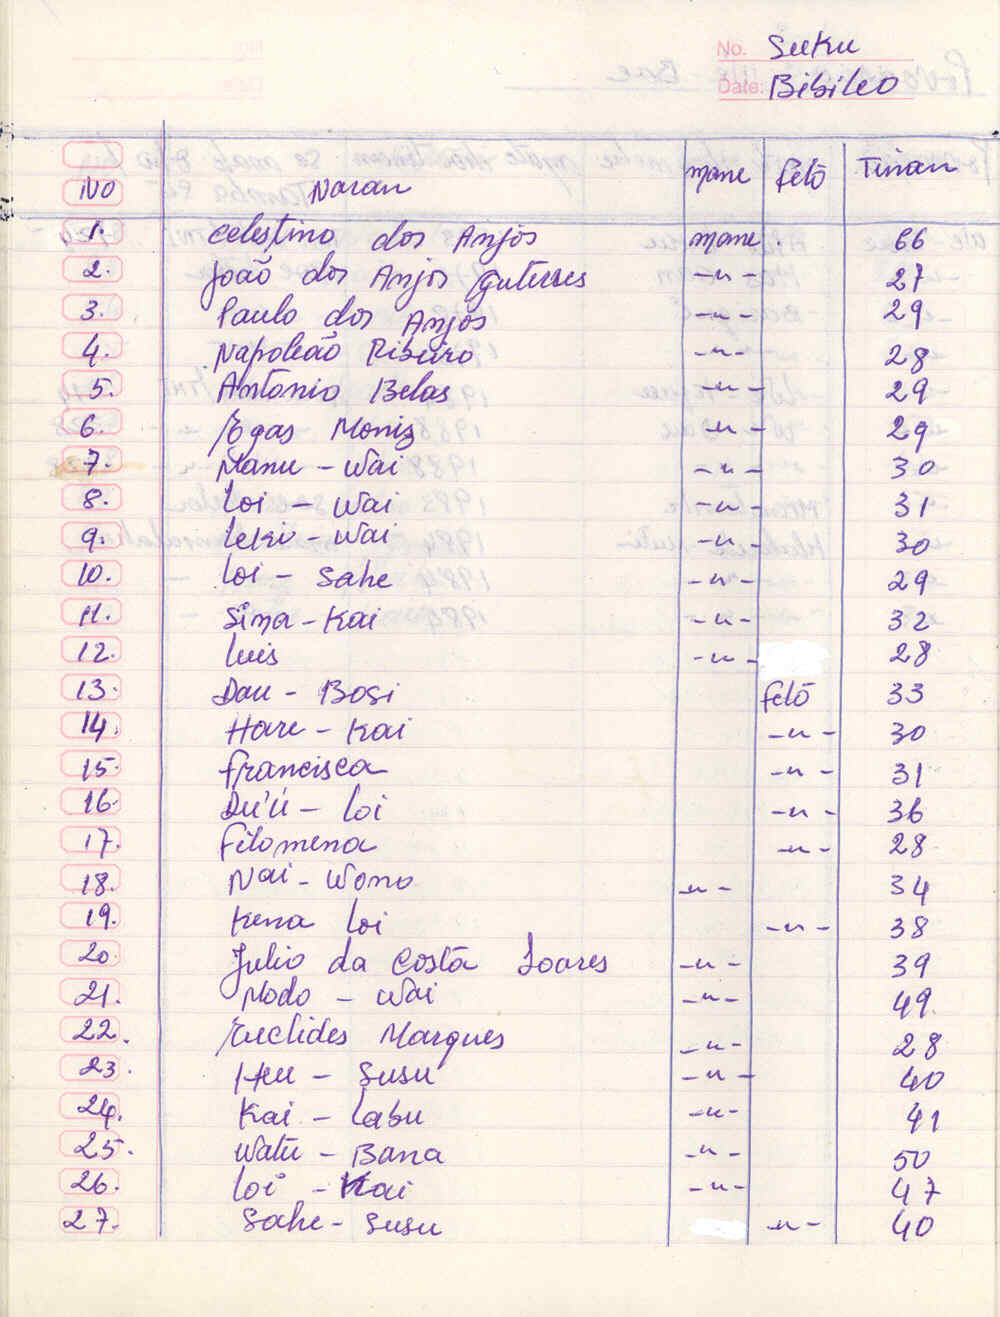 No. Suku
Date: Bibileo
No Naran mane feto Tinan
1. Celestino dos Anjos mane 66
2. João dos Anjos Guterres -"- 27
3. Paulo dos Anjos -"- 29
4. Napoleão Ribeiro -"- 28
5. Antonio Belas -"- 29
6. Egas Moniz -"- 29
7. Nanu - Wai -"- 30
8. Loi - Wai -"- 31
9. Leki - Wai -"- 30
10. Loi - Sahe -"- 29
11. Sina - Kai -"- 32
12. Luis -"- 28
13. Dau - Bosi feto 33
14. Hare - Kai -"- 30
15. Francisca -"- 31
16. Du'ú - Loi -"- 36
17. Filomena -"- 28
18. Nai - Wono -"- 34
19. Kena Loi -"- 38
20. Julio da Costa Soares -"- 39
21. Modo - Wai -"- 49
22. Euclides Marques -"- 28
23. - Susu -"- 40
24. Kai - Labu -"- 41
25. Watu - Bana -"- 50
26. Loi - Kai -"- 47
27. Sahe - Susu -"- 40